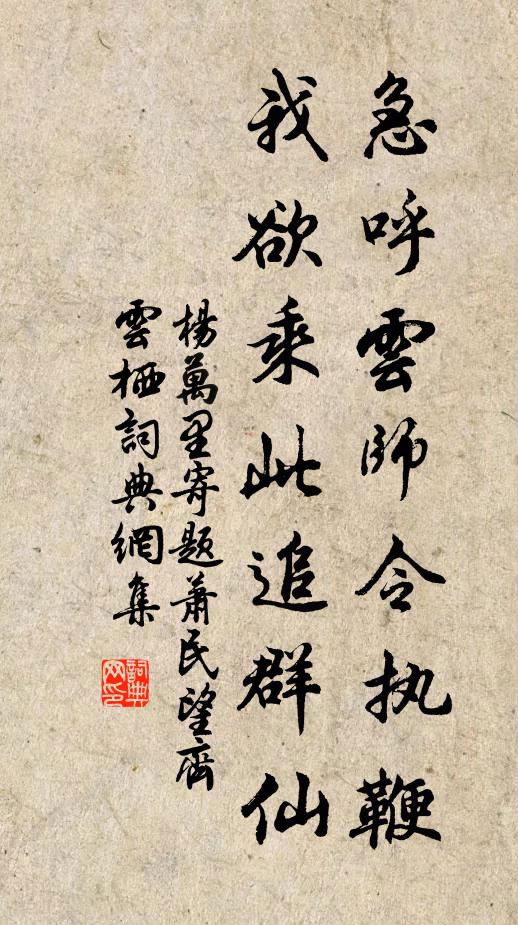 急呼雲師令执鞭
我欲乘此追群仙
楊萬里寄题蕭民望齋
雲栖詞典網集
詞典网印